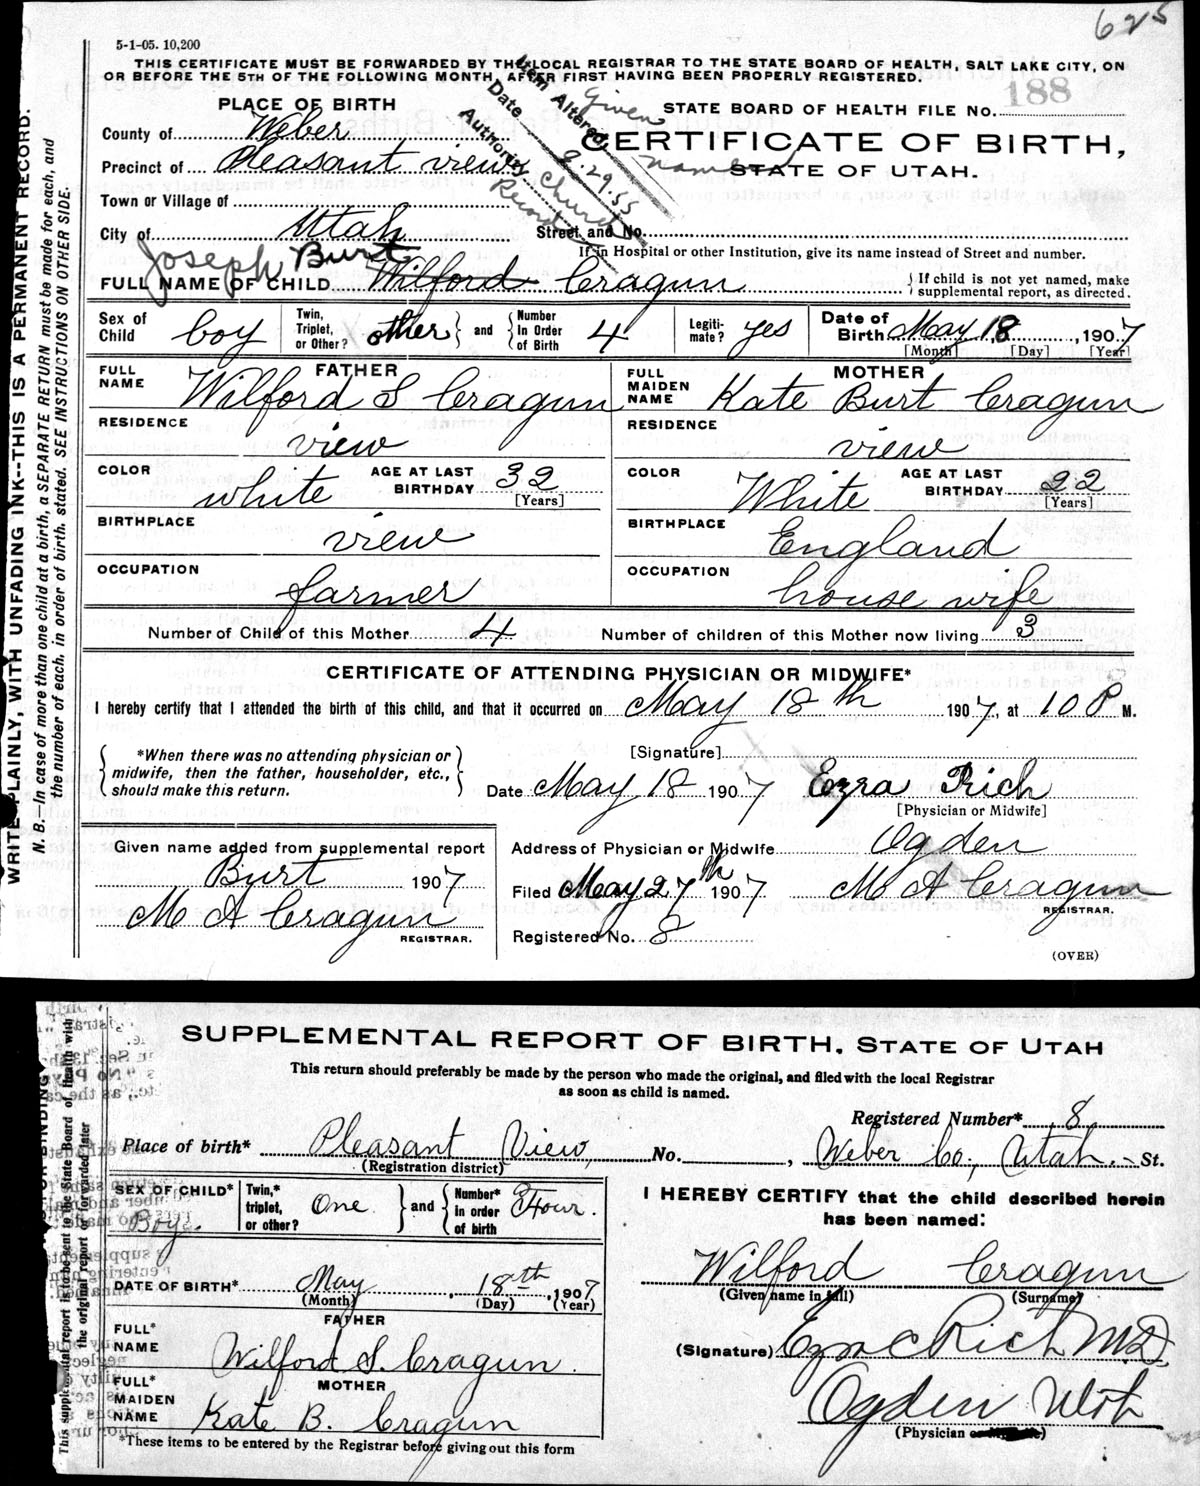 625
5-1-05. 10,200
THIS CERTIFICATE MUST BE FORWARDED BY THE LOCAL REGISTRAR TO THE STATE BOARD OF HEALTH, SALT LAKE CITY, ON
OR BEFORE THE 5TH OF THE FOLLOWING MONTH, AFTER FIRST HAVING BEEN PROPERLY REGISTERED.
WRITE PLAINLY, WITH UNFADING INK--THIS IS A PERMANENT RECORD.
N. B.—In case of more than one child at a birth, a SEPARATE RETURN must be made for each, and
the number of each, in order of birth, stated. SEE INSTRUCTIONS ON OTHER SIDE.
Item Altered Given name
Date 9.29.55
Authority Church Record
PLACE OF BIRTH
STATE BOARD OF HEALTH FILE No. 188
CERTIFICATE OF BIRTH,
STATE OF UTAH.
County of Weber
Precinct of Pleasant view
Town or Village of
City of Utah Street and No.
If in Hospital or other Institution, give its name instead of Street and number.
Joseph Burt
FULL NAME OF CHILD Wilford Cragun { If child is not yet named, make
supplemental report, as directed.
Sex of Child boy Twin, Triplet, or Other? other } and { Number In Order of Birth 4 Legiti-mate? yes Date of Birth May 18, 1907
[Month] [Day] [Year]
FATHER
FULL NAME Wilford S Cragun
RESIDENCE view
COLOR white AGE AT LAST BIRTHDAY 32 [Years]
BIRTHPLACE view
OCCUPATION farmer
MOTHER
FULL MAIDEN NAME Kate Burt Cragun
RESIDENCE view
COLOR White AGE AT LAST BIRTHDAY 22 [Years]
BIRTHPLACE England
OCCUPATION house wife
Number of Child of this Mother 4 Number of children of this Mother now living 3
CERTIFICATE OF ATTENDING PHYSICIAN OR MIDWIFE*
I hereby certify that I attended the birth of this child, and that it occurred on May 18th 1907, at 10 P M.
{ *When there was no attending physician or
midwife, then the father, householder, etc.,
should make this return. }
[Signature]
Date May 18 1907 Ezra Rich
[Physician or Midwife]
Given name added from supplemental report
Burt 1907
M A Cragun
REGISTRAR.
Address of Physician or Midwife Ogden
Filed May 27th 1907 M A Cragun
REGISTRAR.
Registered No. 8
(OVER)
SUPPLEMENTAL REPORT OF BIRTH, STATE OF UTAH
This return should preferably be made by the person who made the original, and filed with the local Registrar
as soon as child is named.
This supplemental report is to be sent to the State Board of Health with
the original report or forwarded later
Registered Number* 8
Place of birth* Pleasant View, No. , Weber Co, Utah. St.
(Registration district)
SEX OF CHILD* Boy. Twin,* triplet, or other? One } and { Number* in order of birth Four.
DATE OF BIRTH* May 18th, 1907
(Month) (Day) (Year)
FATHER
FULL* NAME Wilford S. Cragun.
MOTHER
FULL* MAIDEN NAME Kate B. Cragun
*These items to be entered by the Registrar before giving out this form
I HEREBY CERTIFY that the child described herein
has been named:
Wilford Cragun
(Given name in full) (Surname)
(Signature) Ezra C Rich M.D.
Ogden Utah
(Physician or Midwife)